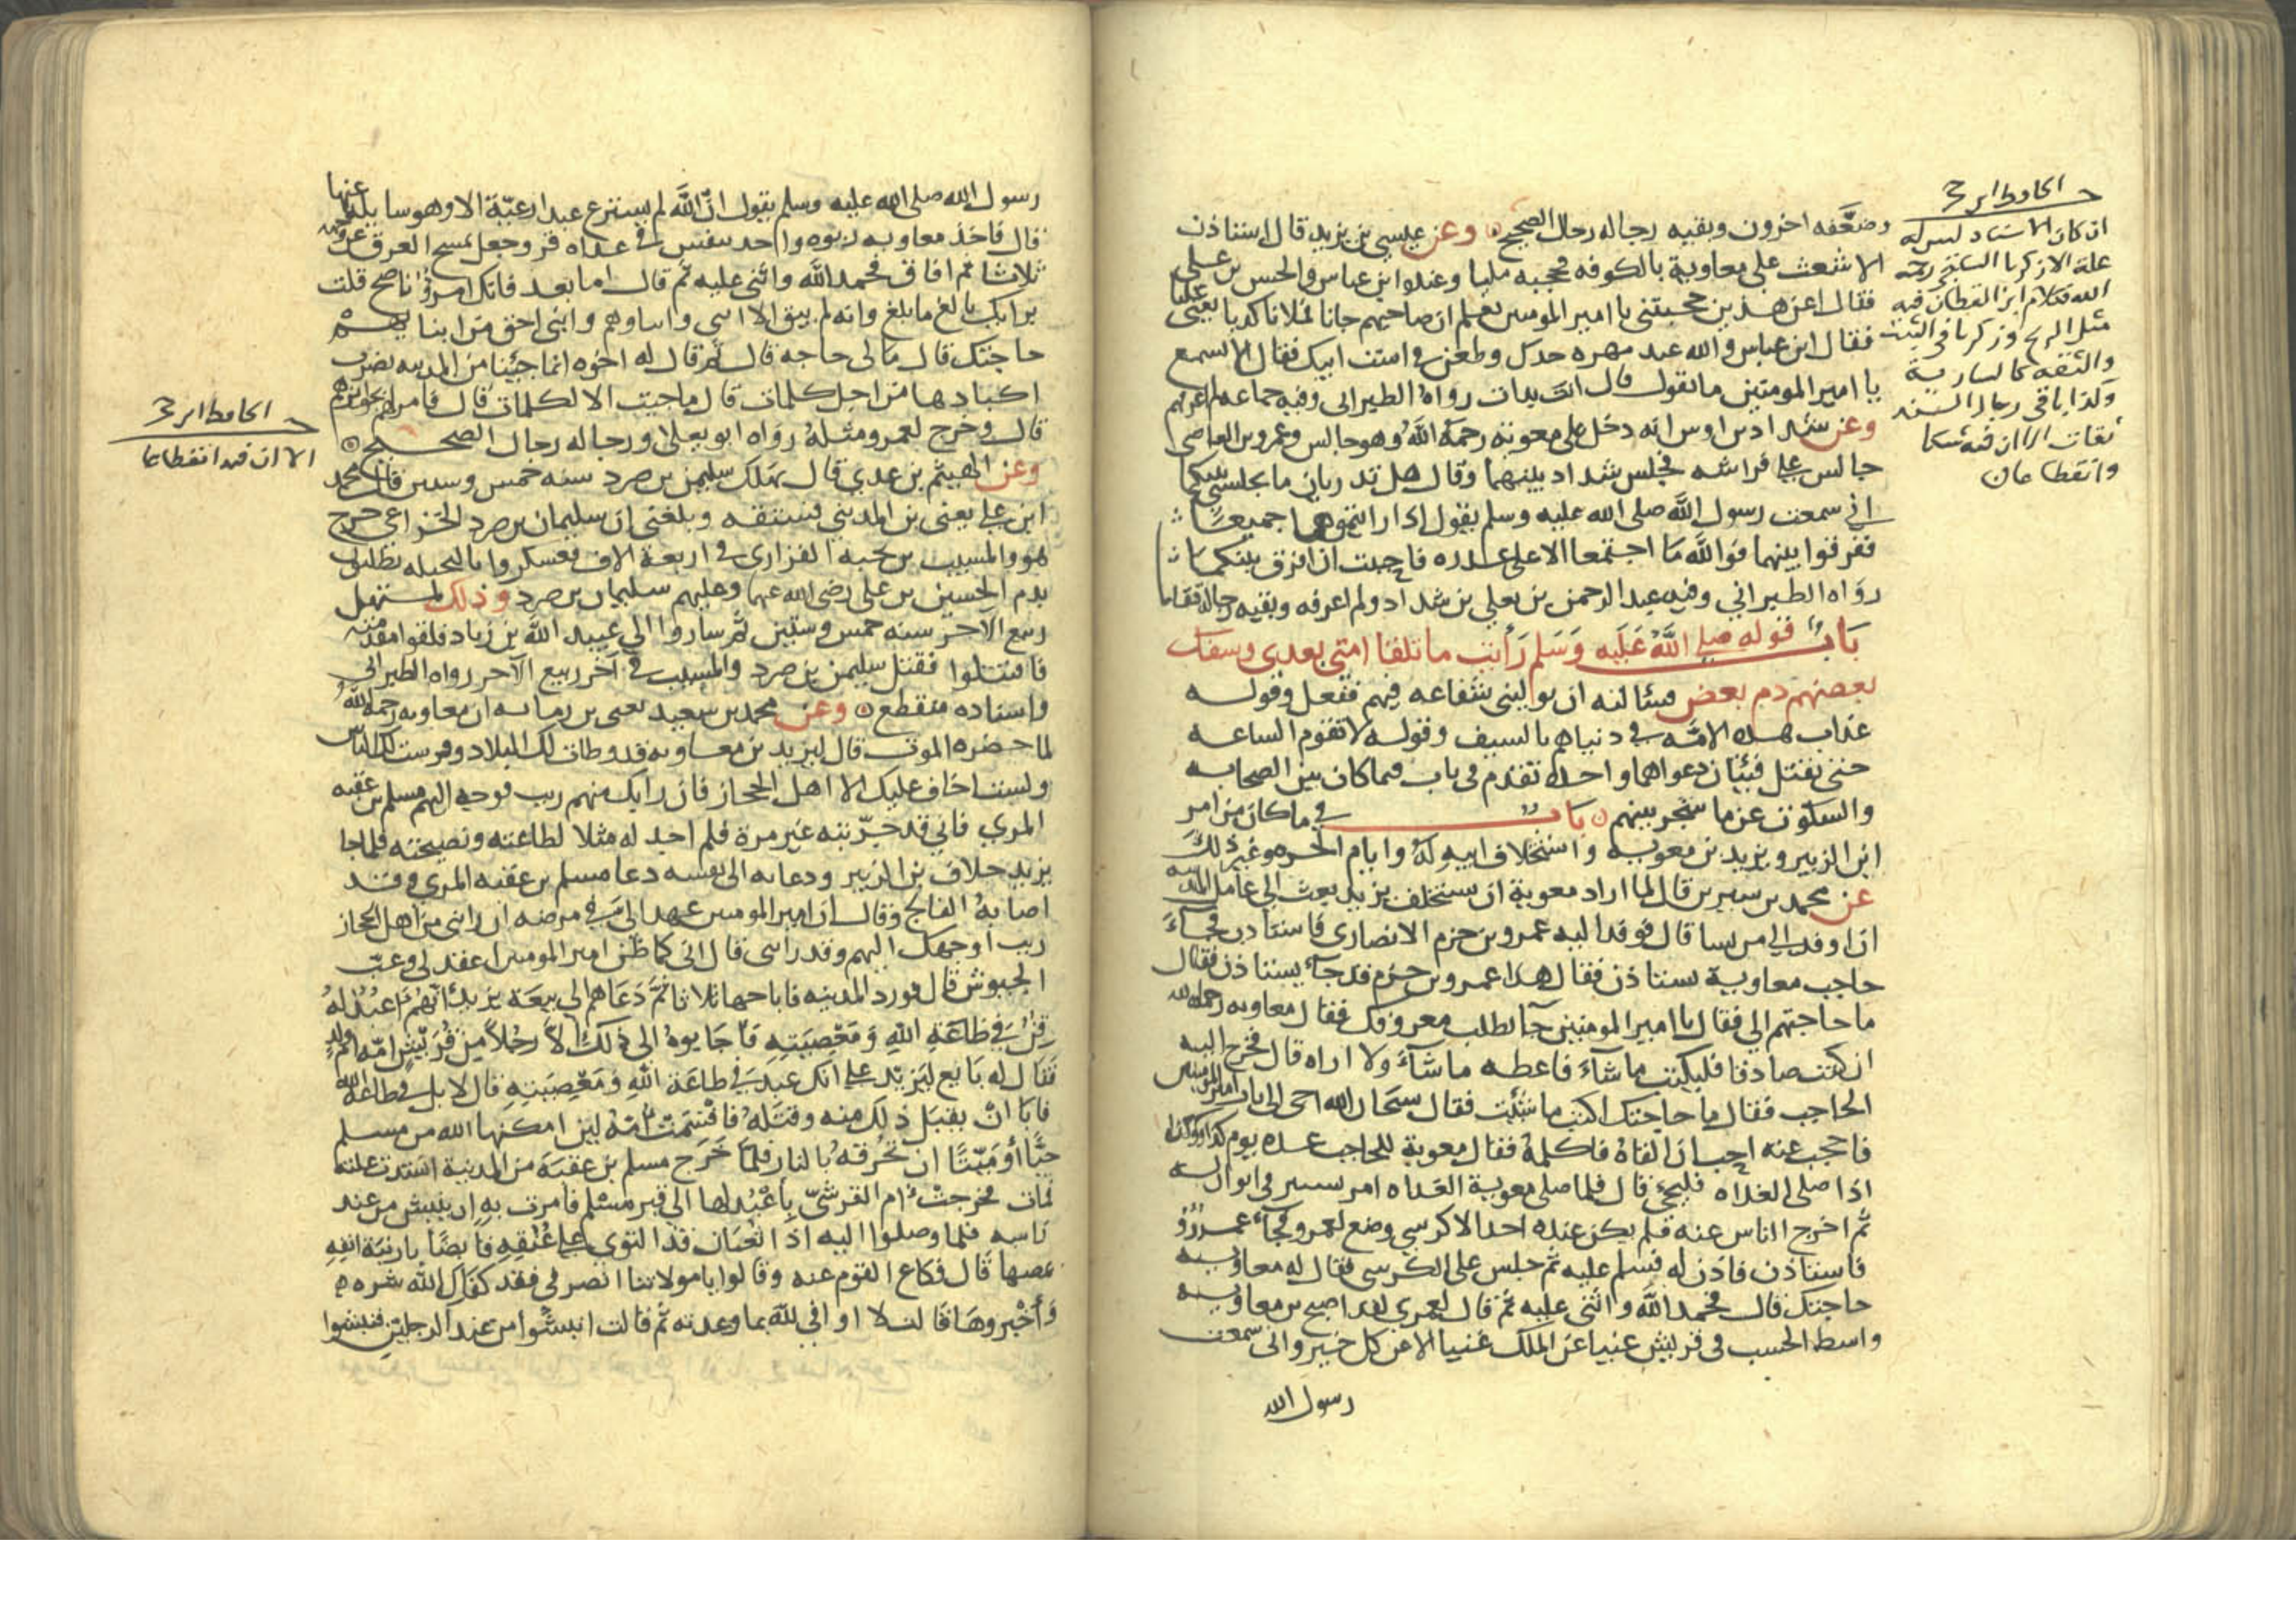 وضعّفه اخرون وبقيه رجاله رجال الصحيح وعن عيسى بن يزيد قال استاذن
الاشعث على معاوية بالكوفه فحجبه مليا وعنده ابن عباس والحسن بن علي
فقال اعن هذين حجبتني يا امير المومنين تعلم ان صاحبهم جانا فملانا كذبا يعني عليا
فقال ابن عباس والله عبد مهره جدك وطعن في است ابيك فقال الا تسمع
يا امير المومنين ما يقول قال انت بدات رواه الطبراني وفيه جماعه لم اعرفهم
وعن شداد بن اوس انه دخل على معوية رحمه الله وهو جالس وعمرو بن العاصي
جالس على فراشه فجلس شداد بينهما وقال هل تدريان ما يجلسني بينكما
اني سمعت رسول الله صلى الله عليه وسلم يقول اذا رايتموهما جميعا
ففرقوا بينهما فوالله ما اجتمعا الا على غدره فاحببت ان افرق بينكما
رواه الطبراني وفيه عبد الرحمن بن يعلى بن شداد ولم اعرفه وبقيه رجاله ثقات
باب قوله صلى الله عليه وسلم رأيت ما تلقا امتي بعدي وسفك
بعضهم دم بعض فسئالته ان يوليني شفاعه فيهم ففعل وقوله
عذاب هذه الامّه في دنياهم بالسيف وقوله لا تقوم الساعه
حتى تقتتل فئتان دعواهما واحده تقدم في باب فيما كان بين الصحابه
والسكوت عن ما شجر بينهم باب في ما كان من امر
ابن الزبير ويزيد بن معويه واستخلاف ابيه له وايام الحره وغير ذلك
عن محمد بن سيرين قال لما اراد معوية ان يستخلف يزيد بعث الى عامل المدينه
ان اوفد الي من تشا قال فوفد اليه عمرو بن حزم الانصاري فاستاذن فجآء
حاجب معاوية يستاذن فقال هذا عمرو بن حزم قد جآء يستاذن فقال
ما حاجتهم الي فقال يا امير المومنين جآ يطلب معروفك فقال معاويه رحمه الله
ان كنت صادقا فليكتب ما شآء فاعطه ما شآء ولا اراه قال فخرج اليه
الحاجب فقال ما حاجتك اكتب ما شئت فقال سبحان الله اجى الى باب امير المومنين
فاحجب عنه احب ان القاه فاكلمه فقال معوية للحاجب عده يوم كذا وكذا
اذا صلى الغداه فليجيء قال فلما صلى معوية الغداه امر بسرير في ايوان له
ثم اخرج الناس عنه فلم يكن عنده احد الا كرسي وضع لعمرو فجآء عمرو
فاستاذن فاذن له فسلم عليه ثم جلس على الكرسي فقال له معاويه
حاجتك قال فحمد الله واثنى عليه ثم قال لعمري لقد اصبح بن معاويه
واسط الحسب في قريش غنيا عن الملك غنيا الا عن كل خير واني سمعت
رسول الله
الحافظ ابن حجر
ان كان الاسناد ليس له
علة الا زكريا الساجي رحمه
الله فكلام ابن القطان فيه
مثل الريح وزكريا في الثبت
والثقة كالسارية
وكذا باقي رجال السند
ثقات الا ان فيه
وانقطاعان
رسول الله صلى الله عليه وسلم يقول ان الله لم يسترع عبدا رعيّة الا وهو سايله عنها
قال فاخذ معاويه ربوه واخذ يتنفس في غداه قر وجعل يمسح العرق عن وجهه
ثلاثا ثم افاق فحمد الله واثنى عليه ثم قال اما بعد فانك امرؤ ناصح قلت
برايك بالغ ما بلغ وانه لم يبق الا ابني وابناوهم وابني احق من ابنايهم
حاجتك قال مالي حاجه قال ثم قال له اخوه انما جئنا من المدينه نضرب
اكبادها من اجل كلمات قال ما جيت الا لكلمات قال فامر لهم بجوايزهم
قال وخرج لعمرو مثله رواه ابو يعلى ورجاله رجال الصحيح
وعن الهيثم بن عدي قال هلك سليمن بن صرد سنه خمس وستين قال محمد
ابن علي يعني بن المديني فستقه وبلغني ان سليمان بن صرد الخزاعي خرج
هو والمسيب بن نجبه الفزاري في اربعة الاف فعسكروا بالنخيله يطلبون
بدم الحسين بن علي رضي الله عنهما وعليهم سليمان بن صرد وذلك لمستهل
ربيع الاخر سنه خمس وستين ثم ساروا الى عبيد الله بن زياد فلقوا مقدمته
فاقتتلوا فقتل سليمن بن صرد والمسيب في آخر ربيع الآخر رواه الطبراني
واسناده منقطع وعن محمد بن سعيد يعني بن رمانه ان معاويه رحمه الله
لما حضره الموت قال ليزيد بن معاويه قد وطات لك البلاد وفرست لك الناس
ولست اخاف عليك الا اهل الحجاز فان رابك منهم ريب فوجه اليهم مسلم بن عقبه
المري فاني قد جرّبته غير مرة فلم اجد له مثلا لطاعته ونصيحته فلما جا
يزيد خلاف بن الزبير ودعاه الى نفسه دعا مسلم بن عقبه المري وقد
اصابه الفالج وقال ان امير المومنين عهد الي في مرضه ان رابني من اهل الحجاز
ريب اوجهك اليهم وقد رابني قال اني كما ظن امير المومنين اعقد لي وعبّ
الجيوش قال فورد المدينه فاباحها ثلاثا ثم دعاهم الى بيعة يزيد انهم اعبد له
قن في طاعة الله ومعصيته فاجابوه الى ذلك الا رجلاً من قريش امّه ام ولد
فقال له بايع ليزيد على انك عبد في طاعة الله ومعصيته قال لا بل في طاعة الله
فابا ان يقبل ذلك منه وقتله فاقسمت امه لين امكنها الله من مسلم
حيًّا أو ميّتًا ان تحرقه بالنار فلما خرج مسلم بن عقبة من المدينة اشتدت علته
فمات فخرجت ام القرشيّ باعبُد لها الى قبر مسلم فامرت به ان ينبش من عند
راسه فلما وصلوا اليه اذا ثعبان قد التوى على عنقه قابضًا بارنبة انفه
يمصها قال فكاع القوم عنه وقالوا يا مولاتنا انصرفي فقد كفاك الله شره
وأخبروها قالت لا او افي لله بما وعدته ثم قالت انبشوا من عند الرجلين فنبشوا
الحافظ ابن حجر
الا ان فيه انقطاعا